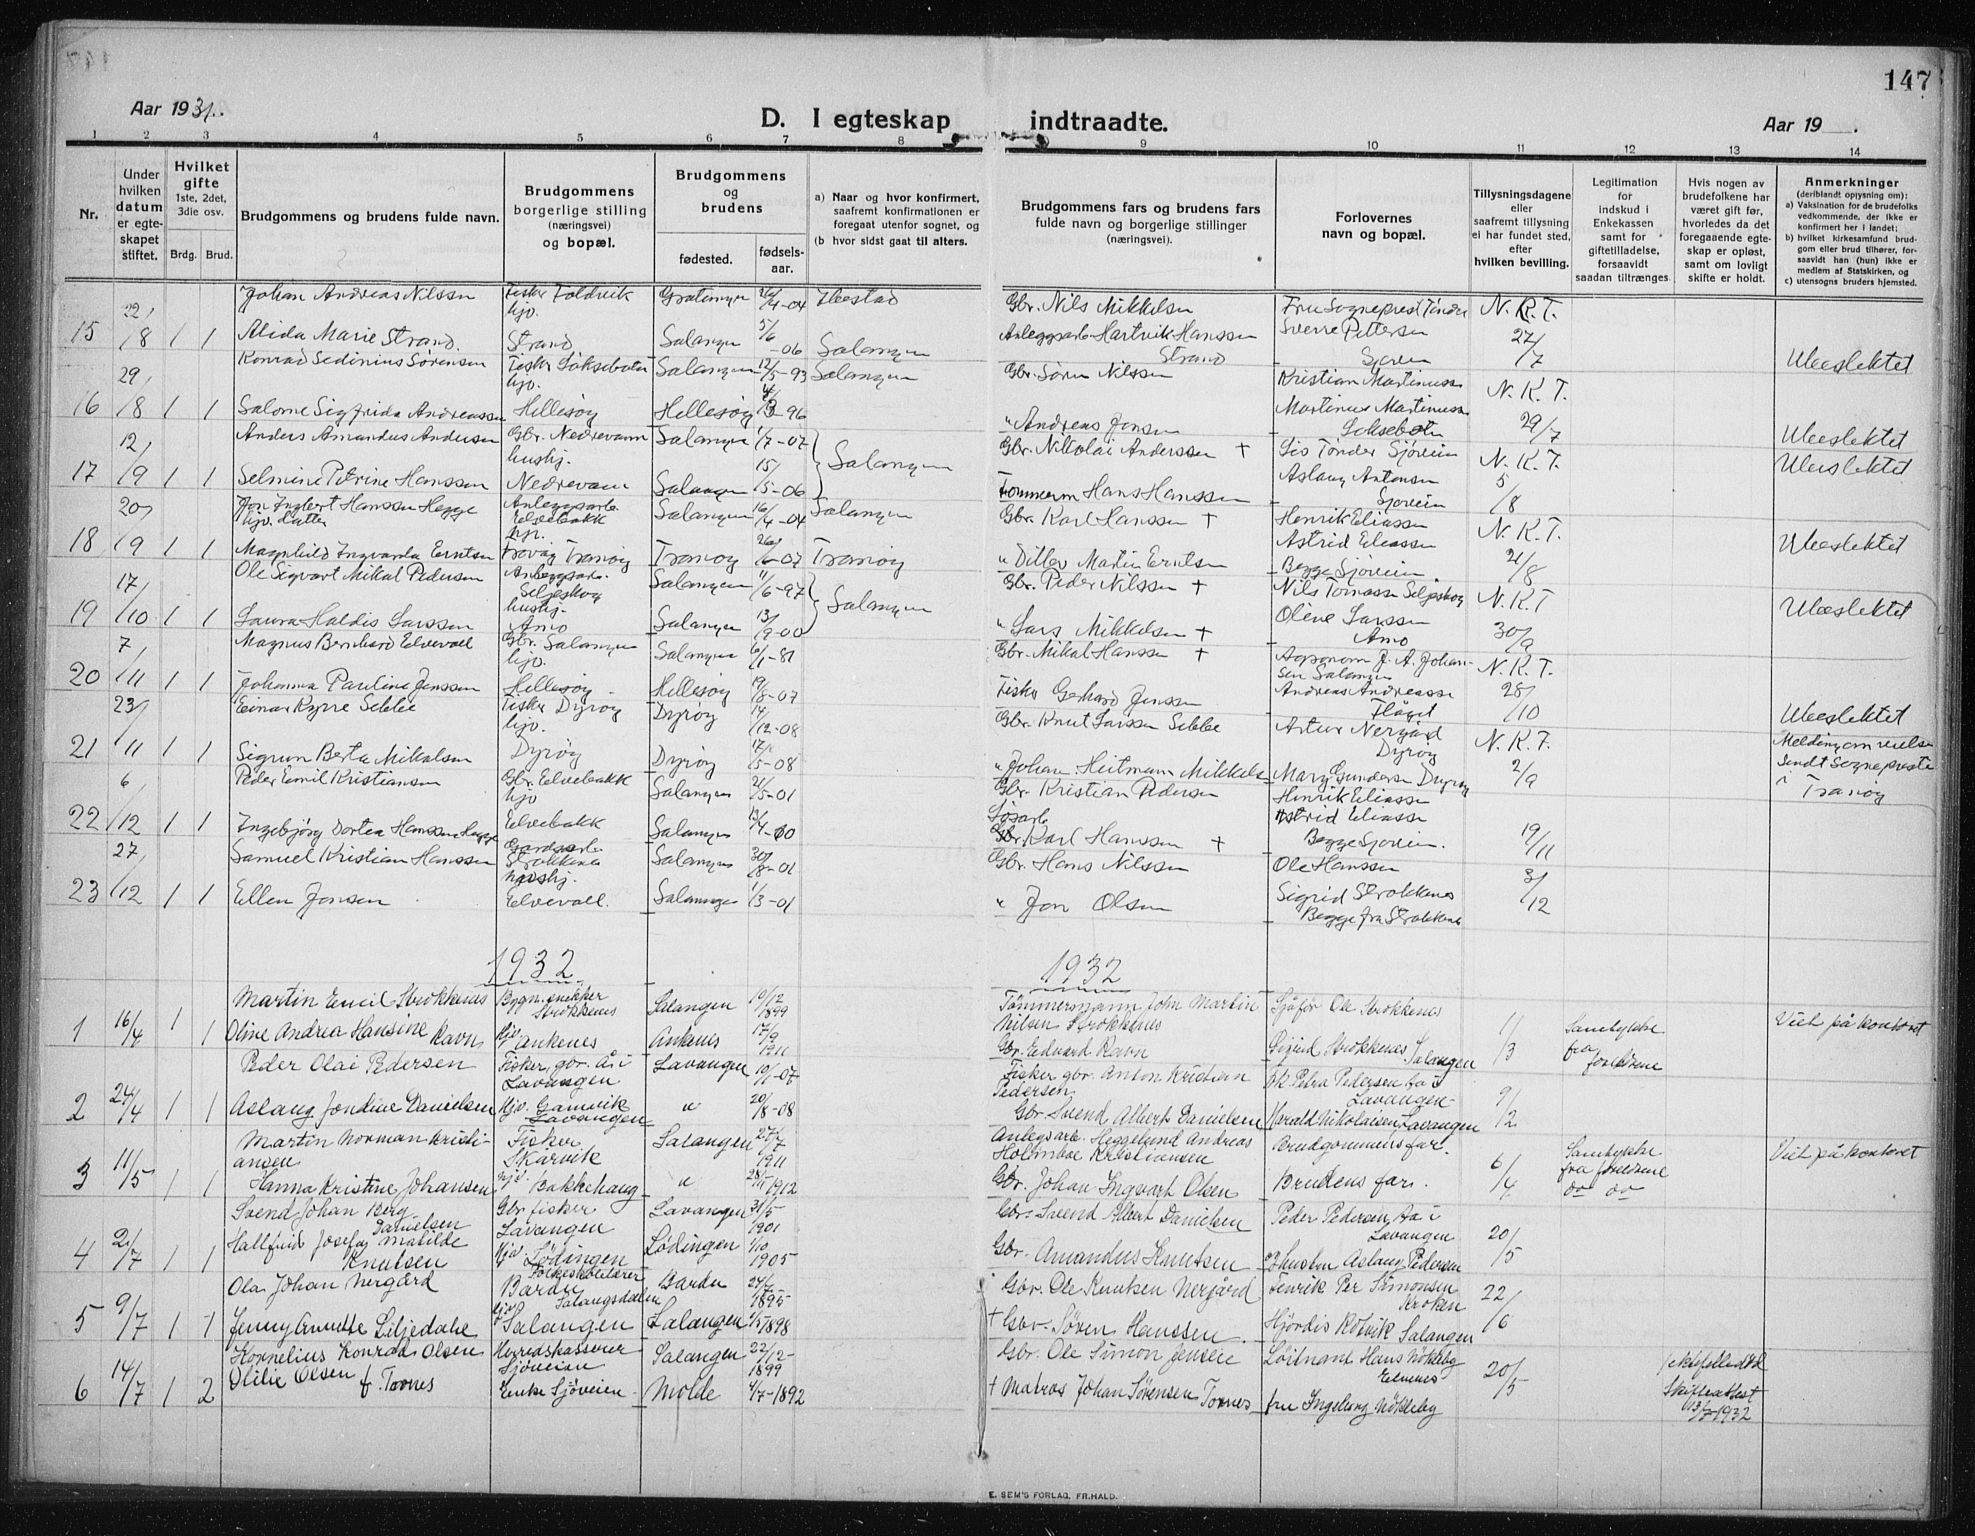 147
Aar 1931.
D. I egteskap indtraadte.
Aar 19 .
1 2 3 4 5 6 7 8 9 10 11 12 13 14
Nr.
Under hvilken datum er egteskapet stiftet.
Hvilket gifte 1ste, 2det, 3die osv.
Brdg. Brud.
Brudgommens og brudens fulde navn.
Brudgommens borgerlige stilling (næringsvei) og bopæl.
Brudgommens og brudens
fødested. fødselsaar.
a) Naar og hvor konfirmert, saafremt konfirmationen er foregaat utenfor sognet, og
(b hvor sidst gaat til alters.
Brudgommens fars og brudens fars fulde navn og borgerlige stillinger (næringsvei).
Forlovernes navn og bopæl.
Tillysningsdagene eller saafremt tillysning ei har fundet sted, efter hvilken bevilling.
Legitimation for indskud i Enkekassen samt for giftetilladelse, forsaavidt saadan tiltrænges.
Hvis nogen av brudefolkene har været gift før, hvorledes da det foregaaende egteskap er opløst, samt om lovligt skifte er holdt.
Anmerkninger (deriblandt opysning om): a) Vaksination for de brudefolks vedkommende, der ikke er konfirmert her i landet; b) hvilket kirkesamfund brudgom eller brud tilhører, forsaavidt han (hun) ikke er medlem af Statskirken, og c) utensogns bruders hjemsted.
Johan Andreas Nilssen Fisker Foldvik Gratangen 04 Ibestad Gbr. Nils Mikkelsen Fru Sogneprest Tønder N.K.T.
15 22/8 1 1 Alida Marie Strand. Strand Salangen 5/6-06 Salangen Anleggsarb Hartvik Hanssen Strand Sverre Pettersen Sjøvein 27/7 Ubeslektet
Konrad Sedinius Sørensen Fisker Salangen 12/5-93 Salangen Gbr. Søren Nilssen Kristian N.K.T.
16 29/8 1 1 Salome Sigfrida Andreassen Hellesøy Hellesøy 96 " Andreas Jensen Martinus 29/7 Ubeslektet
Anders Amandus Andersen Gbr. Nedrevann Salangen 1/7-07 Gbr. Nikolai Anderssen + Lis Tønder Sjøvein N.K.T. Ubeslektet
17 12/9 1 1 Selmine Petrine Hanssen hushj. Nedrevann Salangen 15/5-06 Salangen Tømmerm Hans Hanssen Aslaug Antonsen Sjøvein 5/8
Jon Inglert Hanssen Hegge Anleggsarb. Elvebakk Salangen 16/4-04 Salangen Gbr. Karl Hanssen + Henrik Eliassen N.K.T.
18 20/9 1 1 Magnhild Ingvarda Erntsen Tranøy Tranøy 26/6-07 Tranøy " Ditlev Martin Erntsen Astrid Eliassen Begge Sjøvein 21/8 Ubeslektet
Ole Sigvart Mikal Pedersen Anleggsarb. Seljeskog Salangen 11/6-97 Gbr. Peder Nilssen + Nils Tomassen Seljeskog N.K.T
19 17/10 1 1 Laura Haldis Larssen hushj. Arno Salangen 13/9-00 Salangen " Lars Mikkelsen + Oline Larssen Arno 30/9 Ubeslektet
Magnus Bernhard Elvevoll Gbr. Salangen Salangen 6/1-81 Gbr. Mikal Hanssen + Agronom J. A. Johansen Salangen N.K.T.
20 7/11 1 1 Johanna Pauline Jenssen Hellesøy Hellesøy 19/8-07 Fisker Gerhard Jenssen Andreas Andreassen 28/10 Ubeslektet
Einar Kyrre Sebbe Fisker Dyrøy Dyrøy 14/12-08 Gbr. Knut Larssen Sebbe Artur Nergård Dyrøy N.K.T.
21 23/11 1 1 Sigrun Berta Mikalsen Dyrøy Dyrøy 17/5-08 " Johan Heitmann Mikkelsen Mary Gundersen Dyrøy 2/9 Melding om vielse sendt Sogneprester i Tranøy
Peder Emil Kristiansen Gbr. Elvebakk Salangen 21/5-01 Gbr. Kristian Pedersen Henrik Eliassen
22 6/12 1 1 Ingebjørg Dortea Hanssen Hegge Elvebakk Salangen Karl Hanssen + Astrid Eliassen Begge Sjøvein. 19/11
Samuel Kristian Hanssen Gardsarb. Strokkenes Salangen 30/8-01 Gbr. Hans Nilssen Ole Hanssen
23 27/12 1 1 Ellen Jonsen hushj. Elvevoll. Salangen 1/3-01 " Jon Olsen Sigrid Strokkenes Begge fra Strokkenes 3/12
1932 1932
Martin Emil Strokkenes Bygn.snekker Strokkenes Salangen 10/12 1899 Tømmermann John Martin Nilsen Strokkenes Sjåfør Ole Strokkenes
1 16/4 1 1 Oline Andrea Hansine Ravn Hjv Ankenes Ankenes 17/9 1911 Gbr. Edvard Ravn Sigrid Strokkenes Salangen 1/3 Samtykke fra foreldrene Viet på kontoret
Peder Olai Pedersen Fisker, gbr. Å i Lavangen Lavangen 10/1-07 Fisker gbr. Anton Kristian Pedersen Petra Pedersen Å i Lavangen
2 24/4 1 1 Aslaug Jondine Danielsen Hjv. Gamvik Lavangen " 20/8-08 Gbr. Svend Albert Danielsen Harald Nikolaisen Lavangen 9/2
Martin Norman Kristiansen Fisker Skarvik Salangen 27/7 1911 Anlegsarb. Heggelund Andreas Holmboe Kristiansen Brudgommens far.
3 11/5 1 1 Hanna Kristine Johansen Hjv. Bakkehaug " 28/11 1912 Gbr. Johan Ingvart Olsen Brudens far. 6/4 Samtykke fra foreldrene do do Viet på kontoret
Svend Johan Berg Danielsen Gbr fisker Lavangen Lavangen 31/5 1901 Gbr. Svend Albert Danielsen Peder Pedersen Å i Lavangen
4 2/7 1 1 Hallfrid Josefa Matilde Knutsen Hjv Lødingen Lødingen 1/10 1905 Gbr. Amandus Knutsen og hustru Aslaug Pedersen 20/5
Ola Johan Nergård Folkeskolelærer Bardu Bardu 1895 Gbr. Ole Knutsen Nergård Fenrik Per Simonsen Kroken
5 9/7 1 1 Jenny Anette Liljedahl Hjv Salangsdalen Salangen Salangen 1898 + Gbr. Søren Hanssen. Hjørdis Rotvik Salangen 22/6
Kornelius Konrad Olsen Herredskasserer Sjøveien Salangen 22/12-1899 Gbr. Ole Simon Jensen Løitnant Hans Nökleby Elvenes
6 14/7 1 2 Otilie Olsen f. Tornes Enke Sjøveien Molde 4/7-1892 + Matros Johan Sørensen Tornes fru Ingeborg Nökleby 20/5 Skifteattest 13/7-1932
E. SEM'S FORLAG, FR.HALD.